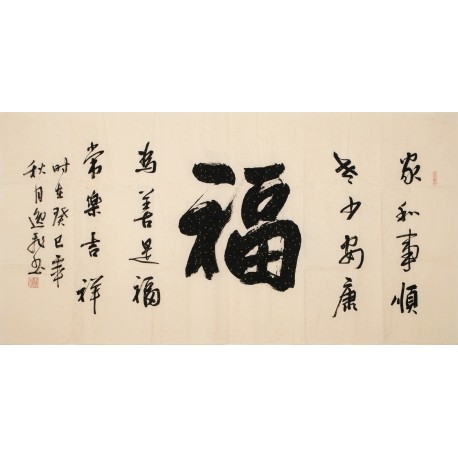 家和事順
老少安康
福
為善是福
常樂吉祥
时在癸巳年
秋月逸義书